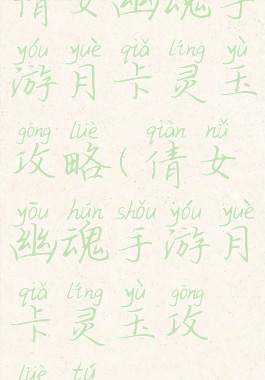 倩女幽魂手
yóu yuè qiǎ líng yù
游月卡灵玉
gōng lüè qiàn nǚ
攻略(倩女
yōu hún shǒu yóu yuè
幽魂手游月
qiǎ líng yù gōng
卡灵玉攻
lüè tú